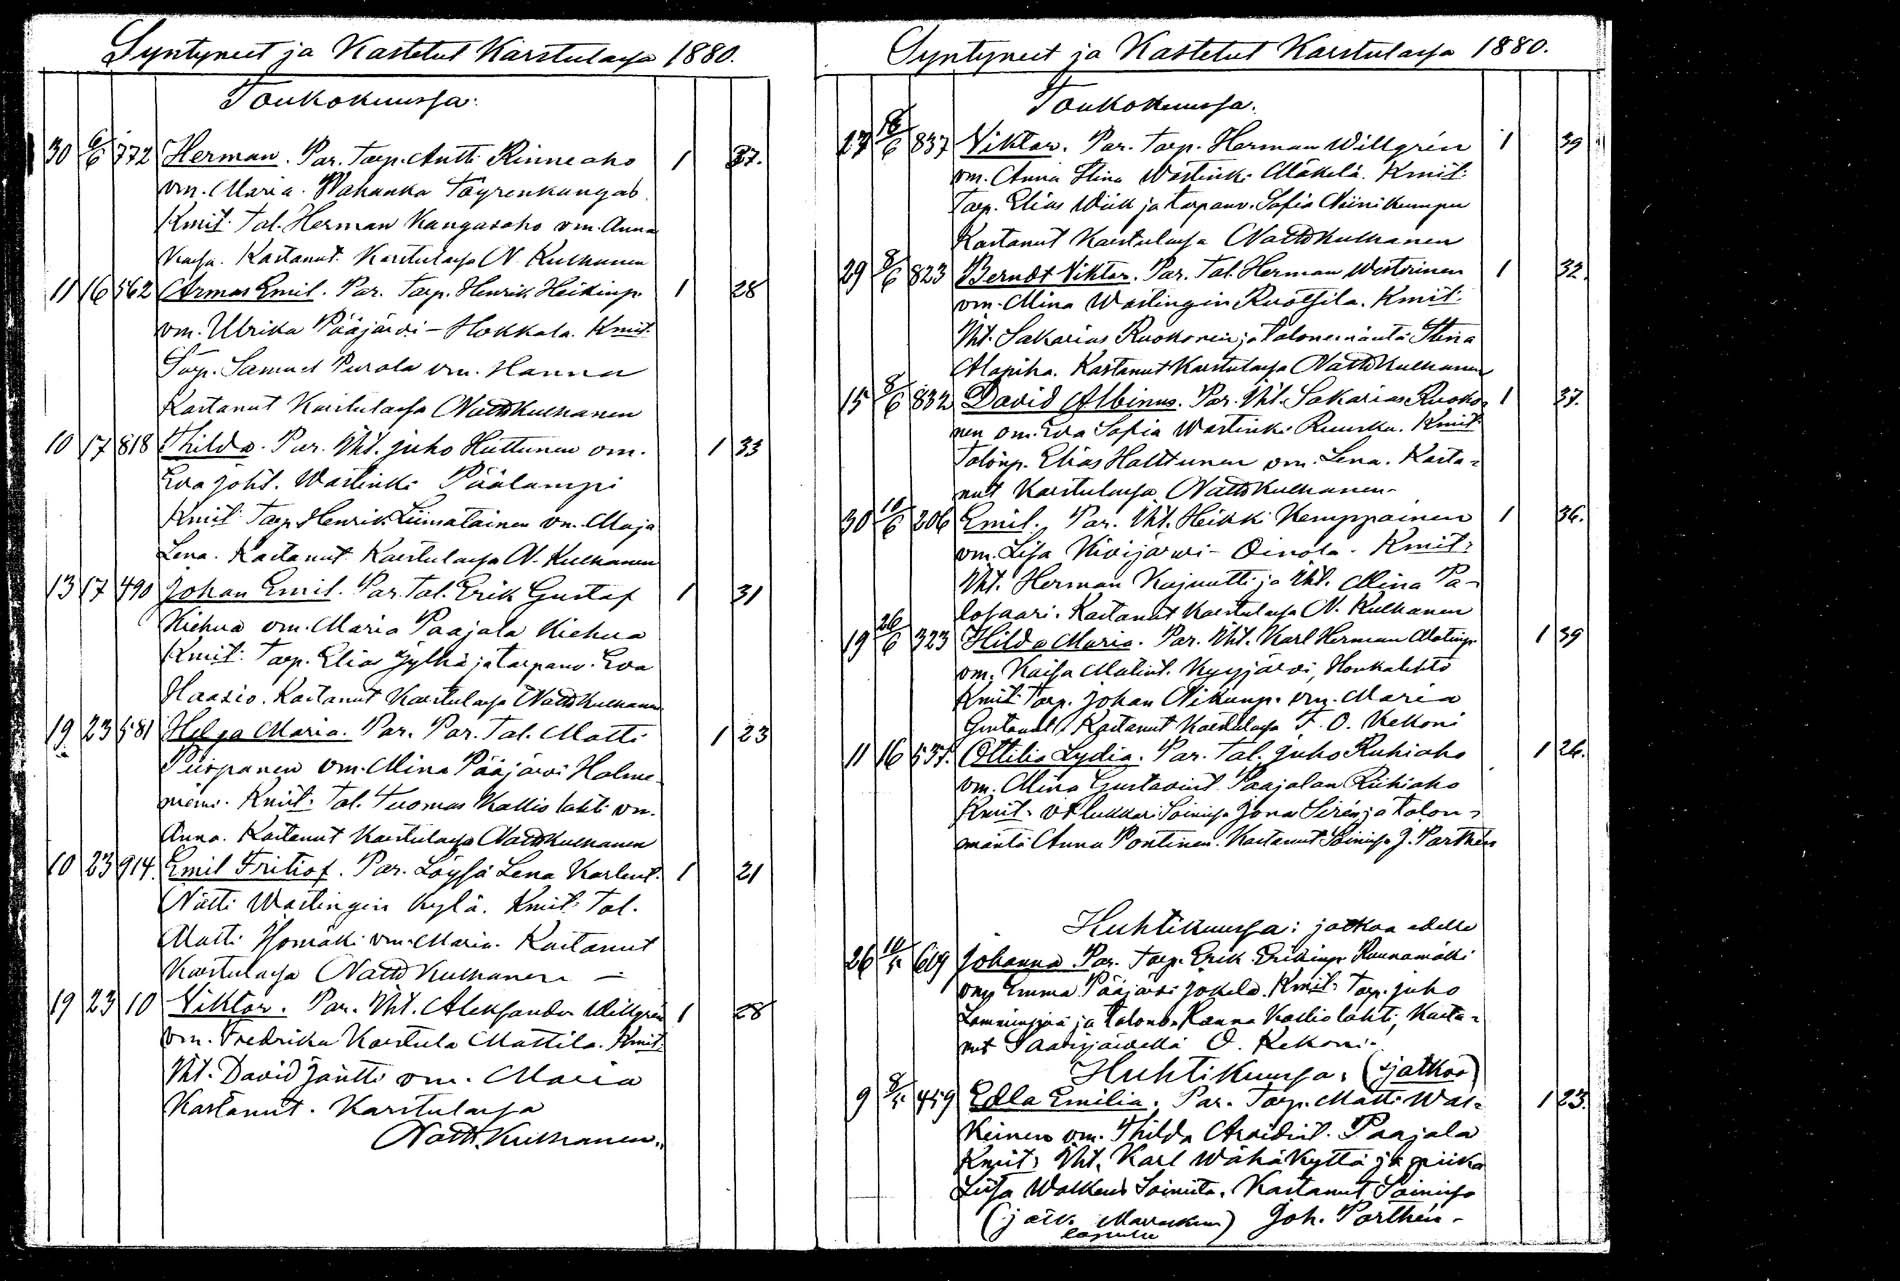 Syntyneet ja Kastetut Karstulassa 1880.
Toukokuussa:
30 6/6 772 Herman. Par. Torp. Antti Rinneaho 1 37.
vm. Maria. Wahanka Töyrenkangas
Kmit: Tal. Herman Kangasaho vm. Anna
Kaisa. Kastanut Karstulassa N. Kulhanen
11 16 562 Armas Emil. Par. Torp. Henrik Heikinp. 1 28
vm. Ulrika Pääjärvi - Hokkala. Kmit:
Torp. Samuel Purola vm. Hanna
Kastanut Karstulassa Natth Kulhanen
10 17 818 Thilda. Par. Iht. Juho Huttunen vm. 1 33
Eva Joht. Wastinki Päälampi
Kmit: Torp. Henrik Liimatainen vm. Maja
Lena. Kastanut Karstulassa N. Kulhanen
13 17 490 Johan Emil. Par. Tal. Erik Gustaf 1 31
Kiehua vm. Maria Paajala Kiehua
Kmit: Torp. Elia Jylhä ja torpanv. Eva
Haasio. Kastanut Karstulassa Natth Kulhanen
19 23 581 Helga Maria. Par. Par. Tal. Matti 1 23
Piispanen vm. Mina Pääjärvi Holme-
niemi. Kmit: Tal. Tuomas Kalliolahti vm.
Anna. Kastanut Karstulassa Natth Kulhanen
10 23 914. Emil Fritiof. Par. Löysä Lena Karlint. 1 21
Nätti Wastingin kylä. Kmit: Tal.
Matti Isomäki vm. Maria. Kastanut
Karstulassa Natth Kulhanen -
19 23 10 Viktor. Par. Iht. Aleksander Willgrén 1 28
vm. Fredrika Karstula Mattila. Kmit:
Iht. David Jäntti vm. Maria
Kastanut. Karstulassa
Natth. Kulhanen.
Syntyneet ja Kastetut Karstulassa 1880.
Toukokuussa.
27 /6 837 Viktor. Par. Torp. Herman Willgrén 1 39
vm. Anna Stina Wastinki Mäkelä. Kmit:
Torp. Elias Wiik ja torpanv. Sofia Niinikumpu
Kastanut Karstulassa Natth Kulhanen
29 8/6 823 Berndt Viktor. Par. Tal. Herman Westerinen 1 32.
vm. Mina Wastingin Ruotsila. Kmit:
Iht. Sakarias Ruokonen ja talonemäntä Stina
Alapiha. Kastanut Karstulassa Natth Kulhanen
15 8/6 832 David Albinus. Par. Iht. Sakarias Ruoko- 1 37.
nen vm. Eva Sofia Wastinki Ruuska. Kmit:
Talonp. Elias Halttunen vm. Lena. Kasta-
nut Karstulassa Natth Kulhanen-
30 10/6 206 Emil. Par. Iht. Heikki Kemppainen 1 36.
vm. Lisa Kivijärvi - Oinola. Kmit:
Iht. Herman Kajuutti ja Iht. Mina Pa-
losaari. Kastanut Karstulassa N. Kulhanen
19 26/6 323 Hilda Maria. Par. Iht. Karl Herman Matinp. 1 39
vm. Kaisa Matint. Kyyjärvi, Honkalehto
Kmit: Torp. Johan Nikunp. vm. Maria
Gustavat. Kastanut Karstulassa F. O. Kekoni
11 16 537. Ottilia Lydia. Par. Tal. Juho Riihiaho 1 26.
vm. Mina Gustavint. Paajalan Riihiaho
Kmit: vt lukkari Soinissa Jona Sirén ja talon-
emäntä Anna Pontinen. Kastanut Soinissa J. Porthén
Huhtikuussa: jatkoa edelle
26 10/5 609 Johanna. Par. Torp. Erik Erikinp. Raunamäki
vmo Emma Pääjärvi Jokela. Kmit: Torp. Juho
Lamminpää ja talonv. Kanna Kalliolahti, Kasta-
nut Saarijärvellä O. Kekoni.
Huhtikuussa: (jatkoa)
9 8/5 459 Edla Emilia. Par. Torp. Matti Wal- 1 23.
keinen vm. Thilda Arvidint. Paajala
Kmit: Iht. Karl Wähäkyttä ja piika
Lisa Walkeus Soinista. Kastanut Soinissa
(jatk. Marraskuun) Joh. Porthén-
lopussa